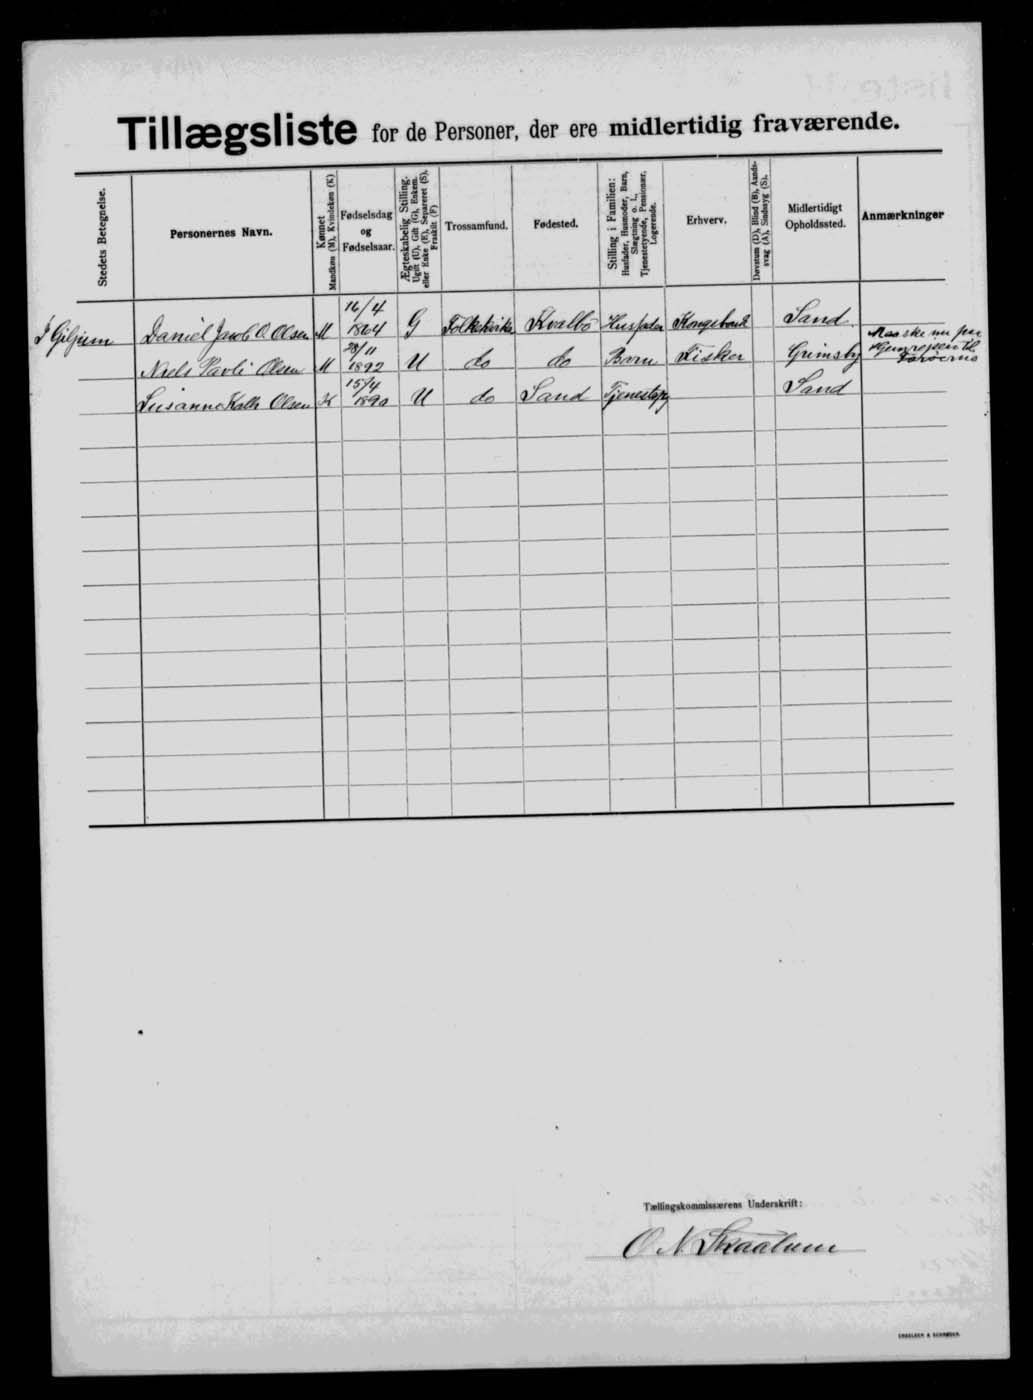 Tillægsliste for de Personer, der ere midlertidig fraværende.
Stedets Betegnelse.
Personernes Navn.
Kønnet
Mandkøn (M), Kvindekøn (K)
Fødselsdag
og
Fødselsaar.
Ægteskabelig Stilling.
Ugift (U), Gift (G), Enkem.
eller Enke (E), Separeret (S),
Fraskilt (F)
Trossamfund.
Fødested.
Stilling i Familien:
Husfader, Husmoder, Barn,
Slægtning o. l.,
Tjenestetyende, Pensionær,
Logerende.
Erhverv.
Døvstum (D), Blind (B), Aands-
svag (A), Sindssyg (S).
Midlertidigt
Opholdssted.
Anmærkninger
I Giljum Daniel Jacob O. Olsen M 16/4 1864 G Folkekirke Kvalbö Husfader Kongebond Sand
Niels Pavli Olsen M 28/11 1892 U do do Barn Fisker Grimsby Maaske nu paa Hjemrejsen til Færöerne
Susanna Kath Olsen K 15/4 1890 U do Sand Tjenestepg Sand
Tællingskommissærens Underskrift:
O N Skaalum
ENGELSEN & SCHRØDER